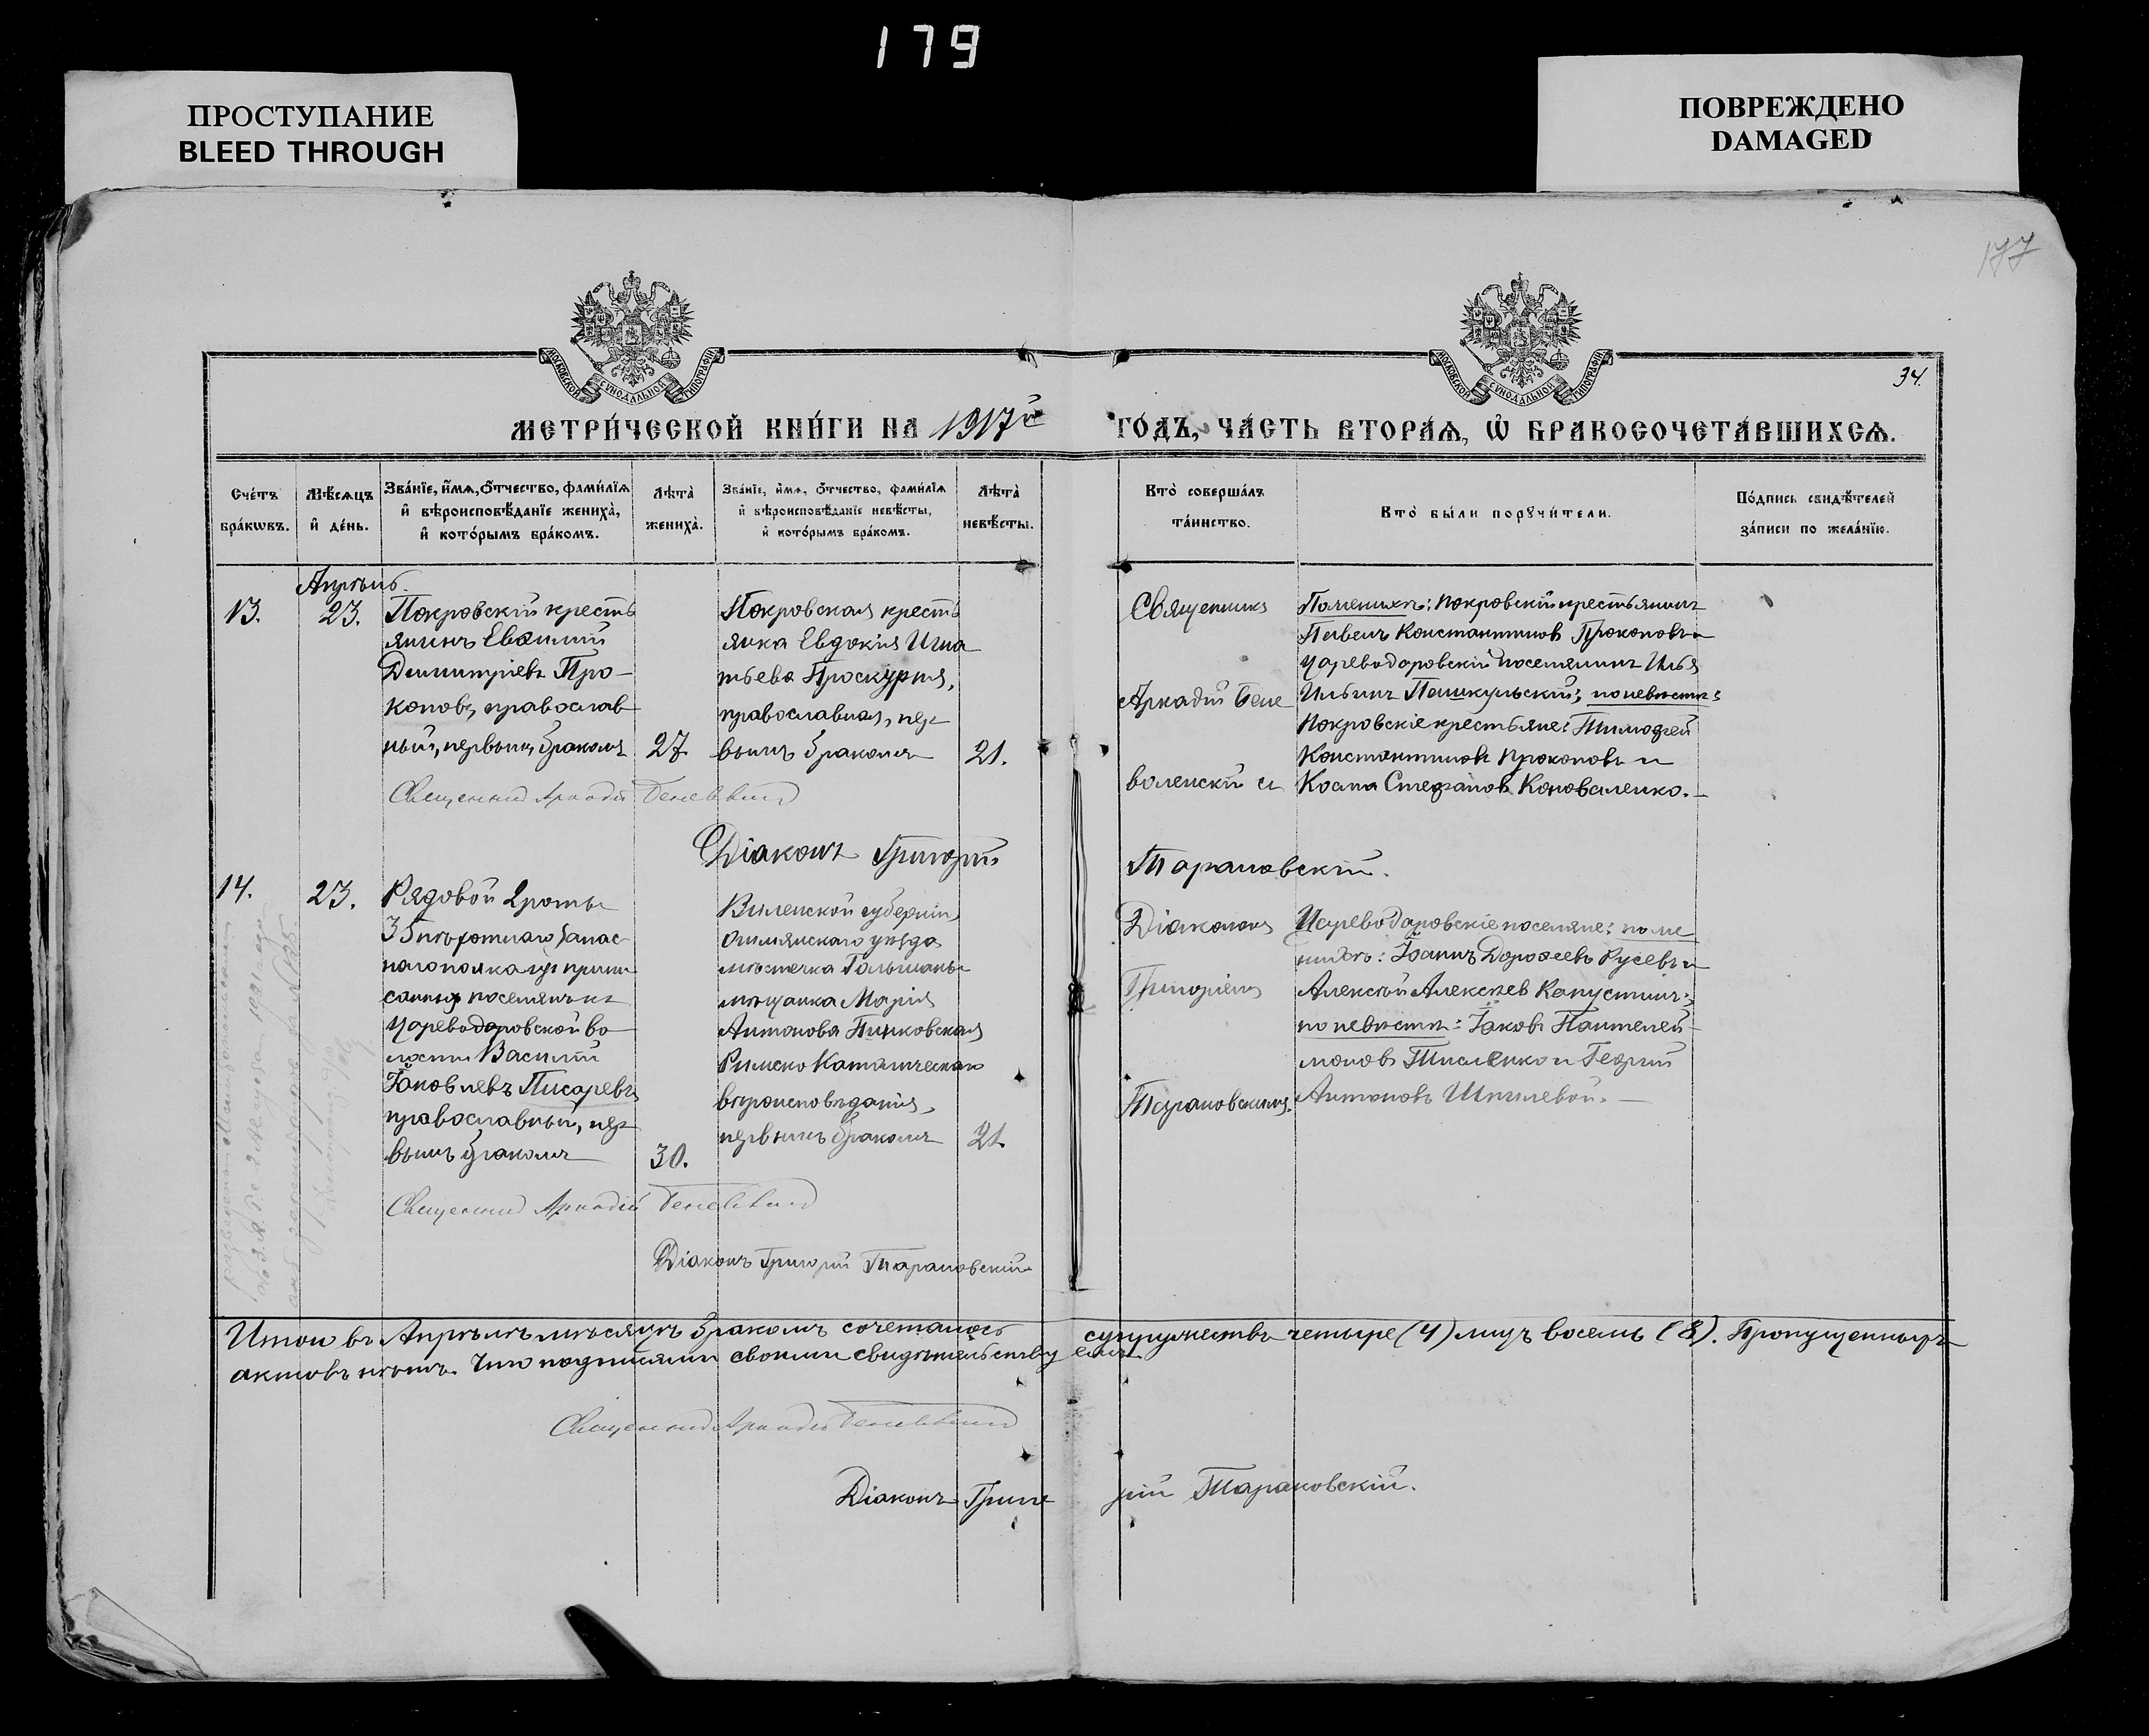 179
ПРОСТУПАНИЕ
BLEED THROUGH
ПОВРЕЖДЕНО
DAMAGED
177
МОСКОВСКОЙ СѴНОДАЛЬНОЙ ТИПОГРАФІИ
МОСКОВСКОЙ СѴНОДАЛЬНОЙ ТИПОГРАФІИ
34.
МЕТРИ́ЧЕСКОЙ КНИ́ГИ НА 1917й ГО́ДЪ, ЧА́СТЬ ВТОРА́Я, Ѡ БРАКОСОЧЕТА́ВШИХСЯ.
Сче́тъ
бра́кѡвъ.
Мѣ́сяцъ
и҆ де́нь.
Зва́нїе, и҆́мя, ѻ҆́тчество, фами́лїя
и҆ вѣроисповѣ́данїе жениха̀,
и҆ кото́рымъ бра́комъ.
Лѣ́та̀
жениха̀.
Зва́нїе, и҆́мя, ѻ҆́тчество, фами́лїя
и҆ вѣроисповѣ́данїе невѣ́сты,
и҆ кото́рымъ бра́комъ.
Лѣ́та̀
невѣ́сты.
Кто̀ соверша́лъ
та́инство.
Кто̀ бы́ли порꙋчи́тели.
По́дпись свидѣ́телей
за́писи по жела́нїю.
Апрѣль.
13.
23.
Покровскій кресть
янинъ Евѳимій
Димитріевъ Про-
коповъ, православ
ный, первымъ бракомъ
27.
Покровская кресть
янка Евдокія Игна
тьева Проскурня,
православная, пер
вымъ бракомъ
21.
Священникъ
Аркадій Бене
воленскій и
По женихѣ: покровскій крестьянинъ
Павелъ Константиновъ Прокоповъ и
Цареводаровскій поселянинъ Илья
Ильинъ Пашкульскій; по невѣстѣ:
покровскіе крестьяне: Тимофей
Константиновъ Прокоповъ и
Косма Стефановъ Коноваленко.
Священникъ Аркадій Беневоленскій
Діаконъ Григорій Тарановскій.
14.
23.
Рядовой 2 роты
35 пѣхотнаго запас
наго полка
поселянъ
Цареводаровской во
лости Василій
Іаковлевъ Писаревъ,
православный, пер
вымъ бракомъ
30.
Виленской губерніи
Ошмянскаго уѣзда
мѣстечка Гольшаны
мѣщанка Марія
Антонова
Римско Католическаго
вѣроисповѣданія,
первымъ бракомъ
21.
Діакономъ
Григоріемъ
Тарановскимъ.
Цареводаровскіе поселяне: по же
нихѣ: Іоаннъ Дорофеевъ Русевъ и
Алексѣй Алексѣев Капустинъ;
по невѣстѣ: Іаковъ Пантелей-
моновъ Тисленко и Георгій
Антоновъ Шпилевой.
Священникъ Аркадій Беневоленскій
Діаконъ Григорій Тарановскій
Итого въ Апрѣлѣ мѣсяцѣ бракомъ сочеталось супружествъ четыре (4) лицъ восемь (8). Пропущенныхъ
актовъ нѣтъ. Что подписями своими свидѣтельствуемъ
Священникъ Аркадій Беневоленскій
Діаконъ Григорій Тарановскій.